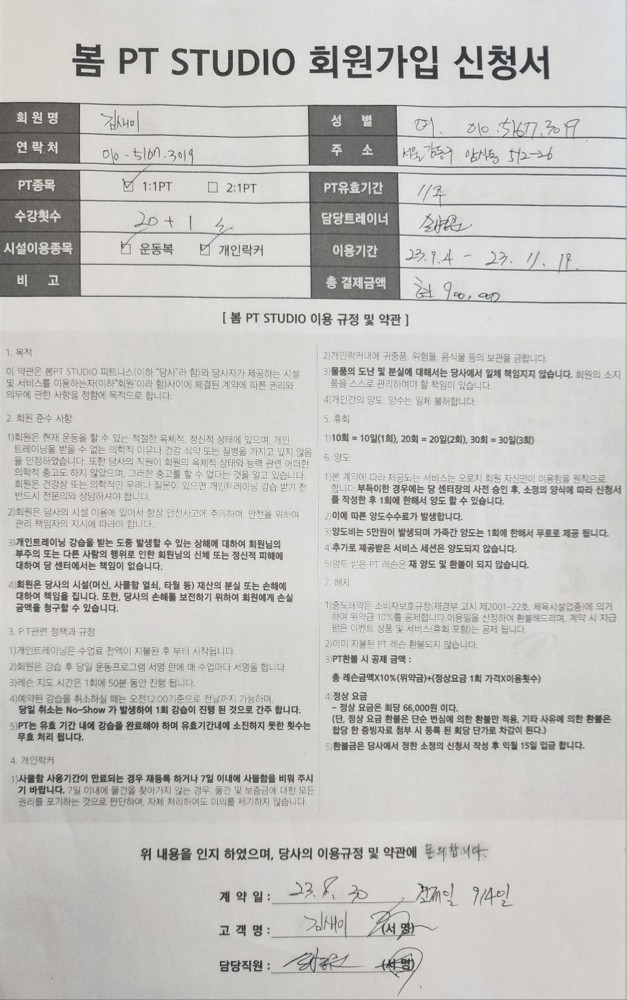 봄 PT STUDIO 회원가입 신청서
회원명 김새미 성 별 여. 010.5167.3019
연락처 010-5167-3019 주 소 서울 강동구 암사동 512-26
PT종목 ☑ 1:1PT ☐ 2:1PT PT유효기간 11주
수강횟수 20 + 1 담당트레이너
시설이용종목 ☑ 운동복 ☑ 개인락커 이용기간 23.9.4 - 23. 11. 19.
비 고 총 결제금액 900,000
[ 봄 PT STUDIO 이용 규정 및 약관 ]
1. 목적
이 약관은 봄PT STUDIO 피트니스(이하 "당사"라 함)와 당사자가 제공하는 시설
및 서비스를 이용하는자(이하"회원'이라 함)사이에 체결된 계약에 따른 권리와
의무에 관한 사항을 정함에 목적으로 합니다.
2. 회원 준수 사항
1)회원은 현재 운동을 할 수 있는 적절한 육체적, 정신적 상태에 있으며, 개인
트레이닝을 받을 수 없는 의학적 이유나 건강 쇠약 또는 질병을 가지고 있지 않음
을 인정하였습니다. 또한 당사의 직원이 회원의 육체적 상태와 능력 관련 어떠한
의학적 충고도 하지 않았으며, 그러한 충고를 할 수 없다는 것을 알고 있습니다.
회원은 건강상 또는 의학적인 우려나 질문이 있으면 개인트레이닝 강습 받기 전
반드시 전문의와 상담하셔야 합니다.
2)회원은 당사의 시설 이용에 있어서 항상 안전사고에 주의하며, 안전을 위하여
관리 책임자의 지시에 따라야 합니다.
3)개인트레이닝 강습을 받는 도중 발생할 수 있는 상해에 대하여 회원님의
부주의 또는 다른 사람의 행위로 인한 회원님의 신체 또는 정신적 피해에
대하여 당 센터에서는 책임이 없습니다.
4)회원은 당사의 시설(머신, 사물함 열쇠, 타월 등) 재산의 분실 또는 손해에
대하여 책임을 집니다. 또한, 당사의 손해를 보전하기 위하여 회원에게 손실
금액을 청구할 수 있습니다.
3. P.T관련 정책과 규정
1)개인트레이닝은 수업료 전액이 지불된 후 부터 시작됩니다.
2)회원은 강습 후 당일 운동프로그램 서명 란에 매 수업마다 서명을 합니다.
3)레슨 지도 시간은 1회에 50분 동안 진행 됩니다.
4)예약된 강습을 취소하실 때는 오전12:00기준으로 전날까지 가능하며,
당일 취소는 No-Show 가 발생하여 1회 강습이 진행 된 것으로 간주 합니다.
5)PT는 유효 기간 내에 강습을 완료해야 하며 유효기간내에 소진하지 못한 횟수는
무효 처리 됩니다.
4. 개인락커
1)사물함 사용기간이 만료되는 경우 재등록 하거나 7일 이내에 사물함을 비워 주시
기 바랍니다. 7일 이내에 물건을 찾아가지 않는 경우, 물건 및 보증금에 대한 모든
권리를 포기하는 것으로 판단하여, 자체 처리하여도 이의를 제기하지 않습니다.
2)개인락커내에 귀중품, 위험물, 음식물 등의 보관을 금합니다.
3)물품의 도난 및 분실에 대해서는 당사에서 일체 책임지지 않습니다. 회원의 소지
품을 스스로 관리하여야 할 책임이 있습니다.
4)개인간의 양도, 양수는 일체 불허합니다.
5. 휴회
1)10회 = 10일(1회), 20회 = 20일(2회), 30회 = 30일(3회)
6. 양도
1)본 계약에 따라 제공되는 서비스는 오로지 회원 자신만이 이용함을 원칙으로
합니다. 부득이한 경우에는 당 센터장의 사전 승인 후, 소정의 양식에 따라 신청서
를 작성한 후 1회에 한해서 양도 할 수 있습니다.
2)이에 따른 양도수수료가 발생합니다.
3)양도비는 5만원이 발생되며 가족간 양도는 1회에 한해서 무료로 제공 됩니다.
4)추가로 제공받은 서비스 세션은 양도되지 않습니다.
5)양도 받은 PT 레슨은 재 양도 및 환불이 되지 않습니다.
7. 해지
1)중도해약은 소비자보호규정(재경부 고시 제2001-22호, 체육시설업종)에 의거
하여 위약금 10%를 공제합니다.이용일을 산정하여 환불해드리며, 계약 시 지급
받은 이벤트 상품 및 서비스(휴회 포함)는 공제 됩니다.
2)이미 지불된 PT 레슨 환불되지 않습니다.
3)PT환불 시 공제 금액 :
총 레슨금액X10%(위약금)+(정상요금 1회 가격X이용횟수)
4)정상 요금
- 정상 요금은 회당 66,000원 이다.
(단, 정상 요금 환불은 단순 변심에 의한 환불만 적용, 기타 사유에 의한 환불은
합당한 증빙자료 첨부 시 등록 된 회당 단가로 차감이 된다.)
5)환불금은 당사에서 정한 소정의 신청서 작성 후 익월 15일 입금 합니다.
위 내용을 인지 하였으며, 당사의 이용규정 및 약관에 동의합니다.
계 약 일 : 23. 8. 30 9/4일
고 객 명 : 김새미 (서 명)
담당직원 : (서 명)